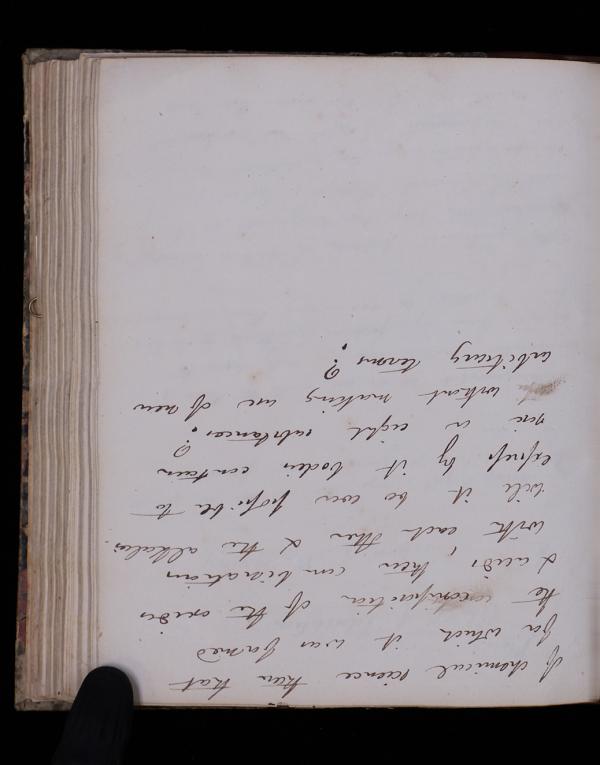 of chemical science than that
for which it was formed
the composition of the oxides
& acids, their combinations
with each other & the alkalis.
will it be ever possible to
express by it bodies contain
six or eight substances?
without making use of new
arbitrary terms?